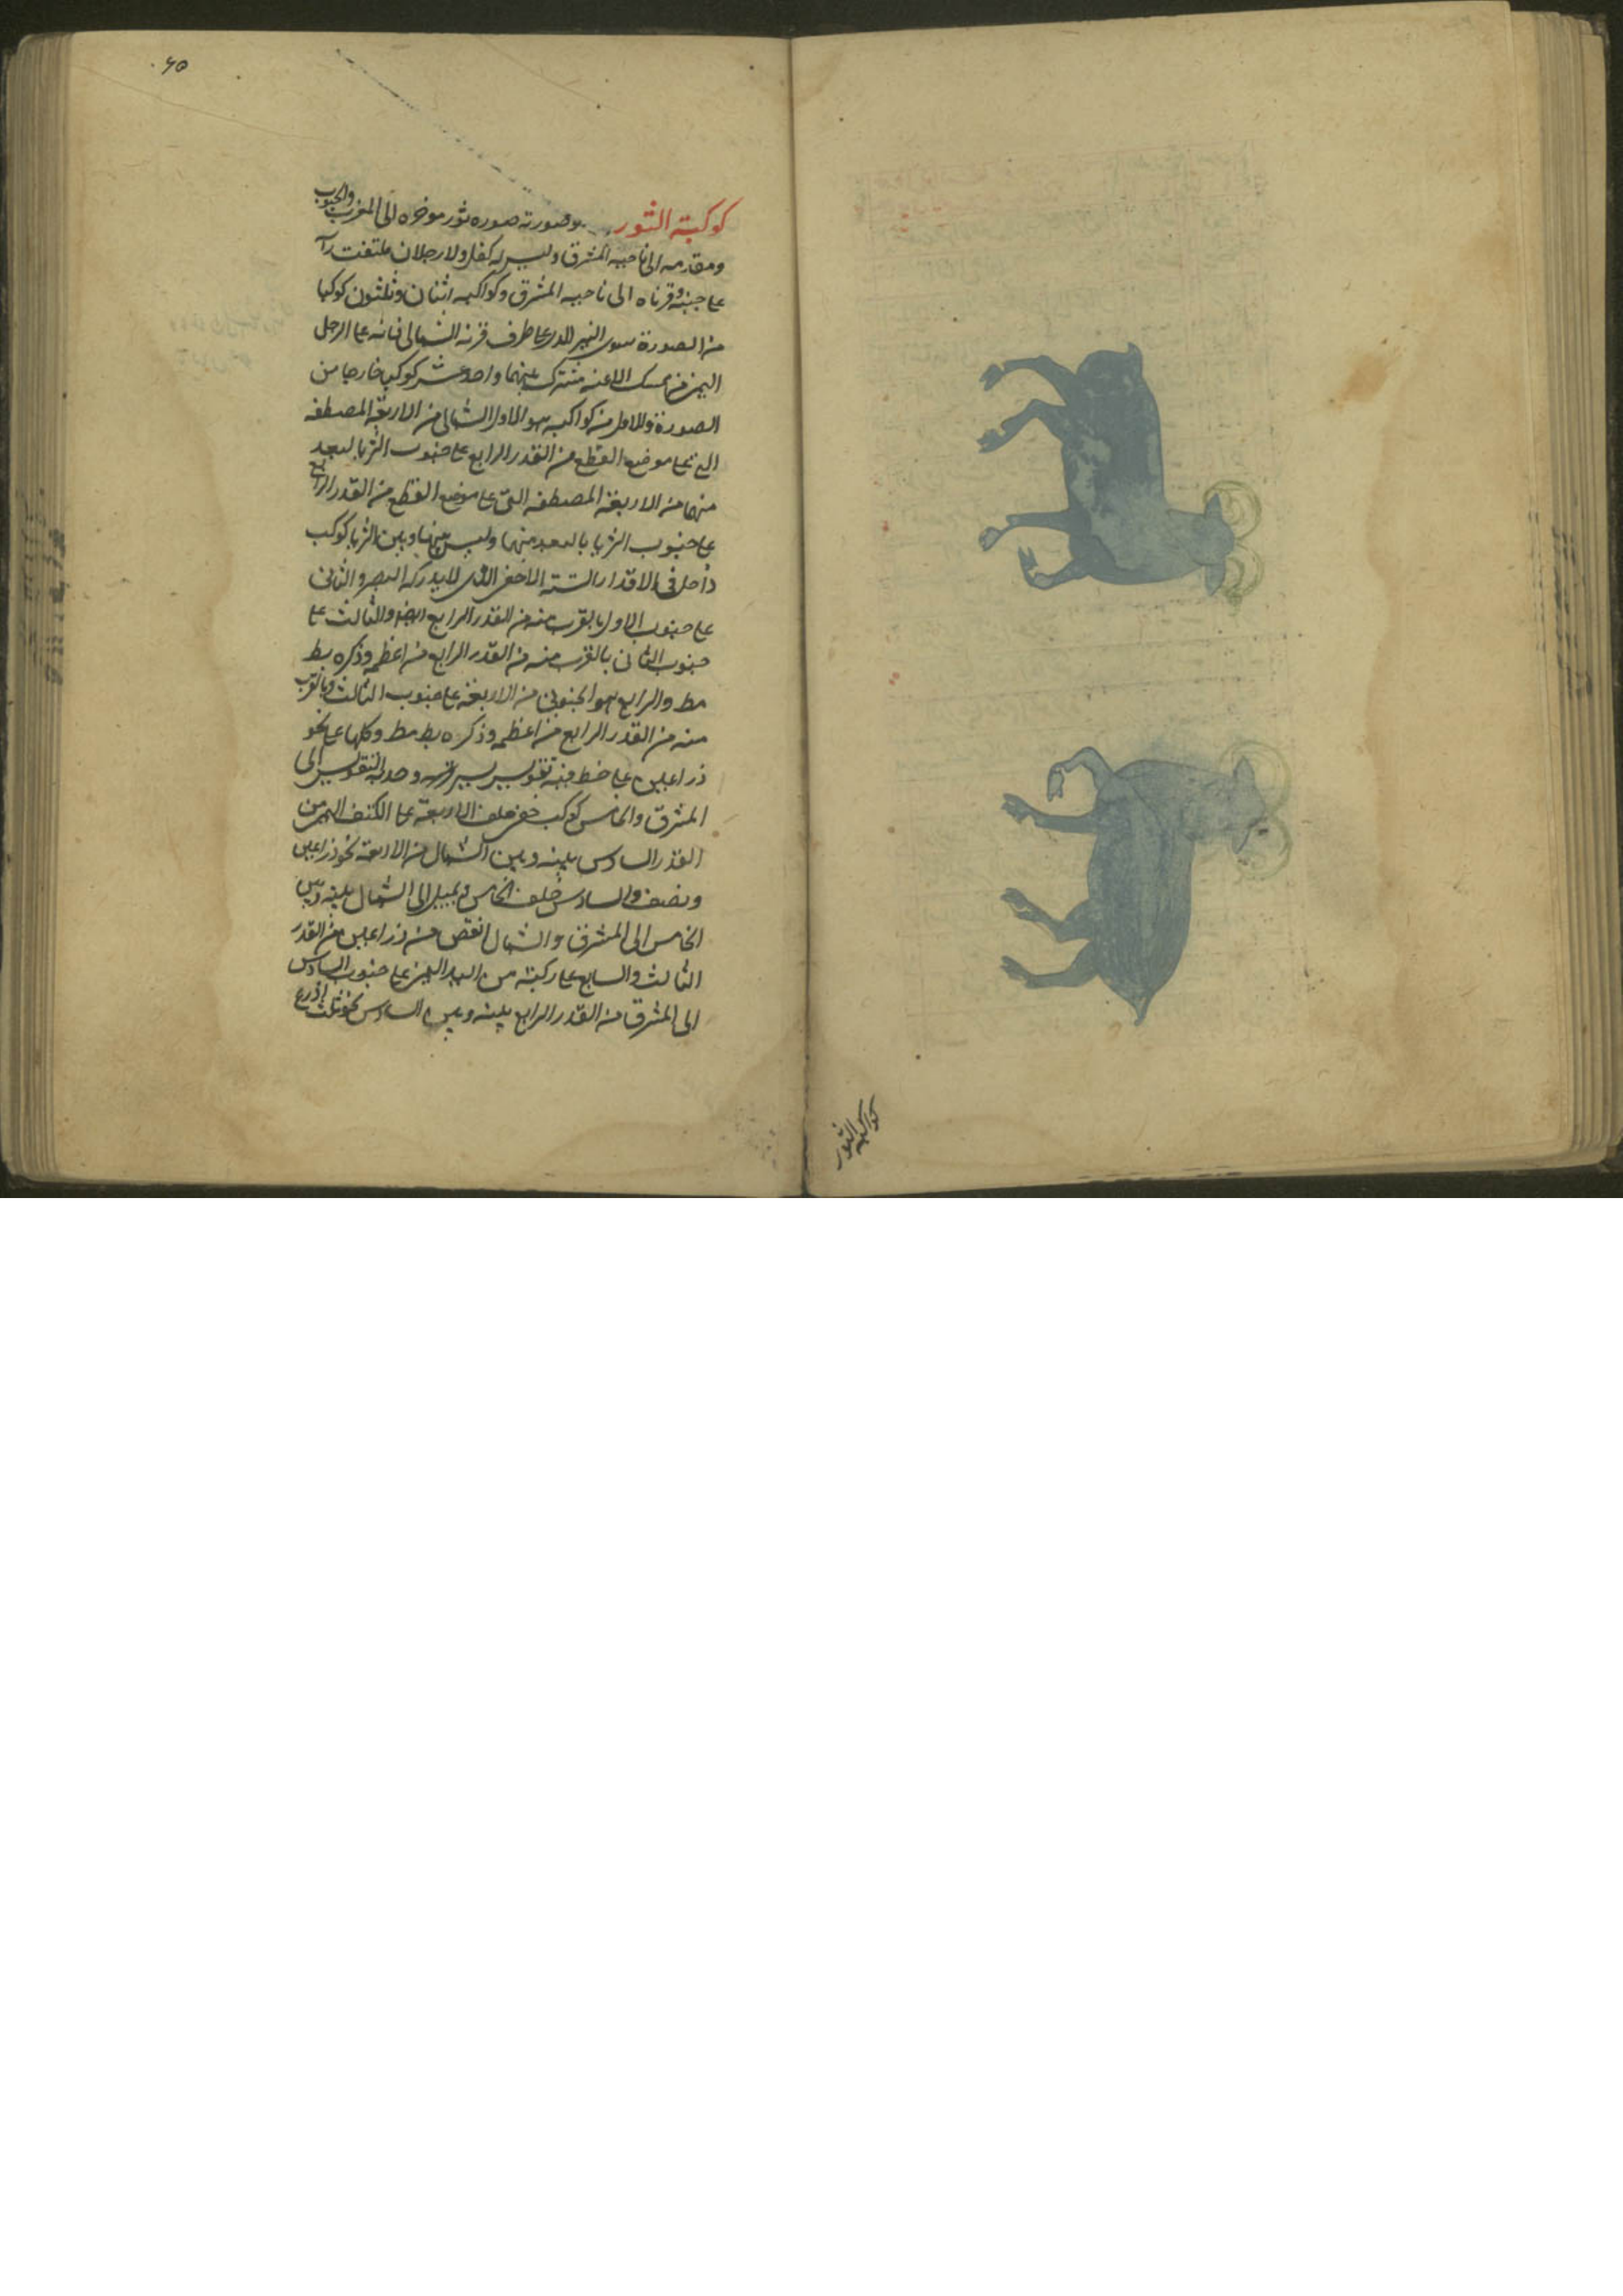 ٤٥
كوكبة الثور وصورته صوره ثور موخره الى المغرب والجنوب
ومقدمه الى ناحيه المشرق وليس له كفل ولا رجلان ملتفت راسه
على جنبه وقرناه الى ناحيه المشرق وكواكبه اثنان وثلثون كوكبا
من الصورة سوى النير الذى على طرف قرنه الشمالى فانه على الرجل
اليمنى من ممسك الاعنه مشترك بينهما واحد عشر كوكبا خارجا من
الصورة والاول من كواكبه هو الاول الشمالى من الاربعة المصطفه
التى على موضع القطع من القدر الرابع على جنوب الثريا لبعد
منها من الاربعة المصطفه التى على موضع القطع من القدر الرابع
على جنوب الثريا بالبعد منها وليس بينها وبين الثريا كوكب
داخل فى الاقدار الستة الا خفى الذى لا يدركه البصر والثانى
على جنوب الاول بالقرب منه من القدر الرابع ايضا والثالث على
جنوب الثانى بالقرب منه من القدر الرابع من اعظمه وذكره بط
مط والرابع هو الجنوبى من الاربعة على جنوب الثالث وبالقرب
منه من القدر الرابع من اعظمه وذكره بط مط وكلها على نحو
ذراعين على خط فيه تقويس يسير وحدبة التقويس الى
المشرق والخامس كوكب خفى خلف الاربعة على الكتف اليمن من
القدر السادس بينه وبين الشمال من الاربعة نحو ذراعين
ونصف والسادس خلف الخامس ويميل الى الشمال بينه وبين
الخامس الى المشرق والشمال انقص من ذراعين من القدر
الثالث والسابع على ركبته من اليد اليمنى على جنوب السادس
الى المشرق من القدر الرابع بينه وبين السادس نحو ثلث اذرع
كواكبة الثور